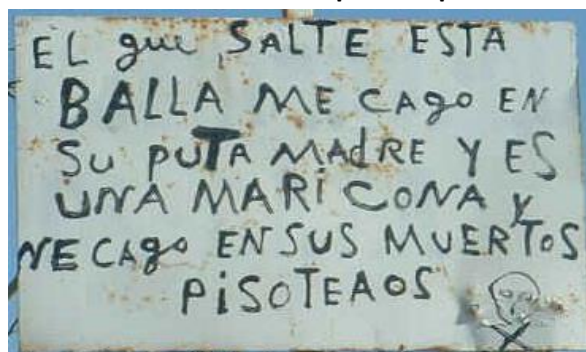 EL que SALTE ESTA
BALLA ME CAgo EN
SU PUTA MAdRE Y ES
UNA MARiCONA y
NE CAgo EN SUS MUERTOS
PiSOTEAOS